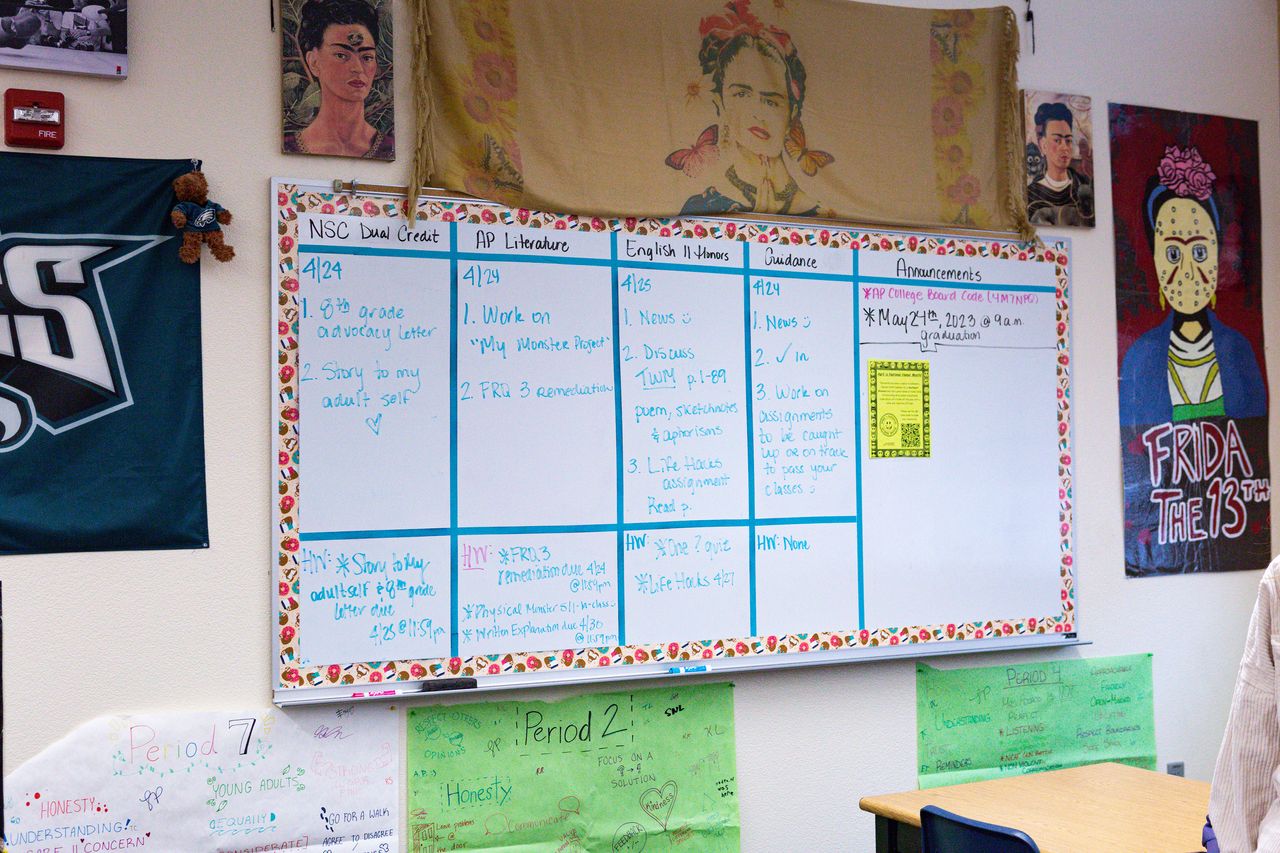 FIRE
NSC Dual Credit
4/24
1. 8th grade
advocacy letter
2. Story to my
adult self
HW: *Story to My
adult self & 8th grade
letter due
4/25 @ 11:59pm
AP Literature
4/24
1. Work on
"My Monster Project"
2. FRQ 3 remediation
HW: *FRQ3
remediation due 4/24
@ 11:59pm
*Physical Monster 5/1-in-class
*Written Explanation due 4/30
@ 11:59pm
English II Honors
4/25
1. News
2. Discuss
TWM p. 1-89
poem, sketchnotes
& aphorisms
3. Life Hacks
assignment
Read p.
HW: *One ? quiz
*Life Hacks 4/27
Guidance
4/24
1. News
2. ✓ in
3. Work on
assignments
to be caught
up or on track
to pass your
classes
HW: None
Announcements
*AP College Board Code (4M7NPG)
*May 24th, 2023 @ 9 a.m.
graduation
FRIDA
THE 13TH
Period 7
HONESTY
UNDERSTANDING!
YOUNG ADULTS
EQUALLY
GO FOR A WALK
AGREE TO DISAGREE
Period 2
RESPECT OTHERS
OPINIONS
Honesty
FOCUS ON A
SOLUTION
Communicate
Kindness
FEEDBACK
Leave problems
@
the door
PERIOD 4
UNDERSTANDING
*LISTENING
REMINDERS
OPEN-MINDED
RESPECT BOUNDARIES